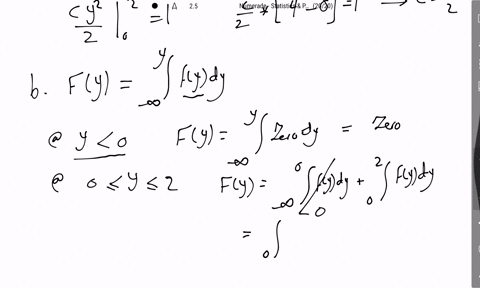 cy²/2 |₀² = 1 2.5 Numerade - Statistics & P... (20/20) /2 * [4-0] = 1 → C = /2
b. F(y) = ∫_{-∞}^{y} f(y) dy
@ y < 0 F(y) = ∫_{-∞}^{y} Zero dy = Zero
@ 0 ≤ y ≤ 2 F(y) = ∫_{-∞}^{0} f(y) dy + ∫_{0}^{2} f(y) dy
0
= ∫_{0}